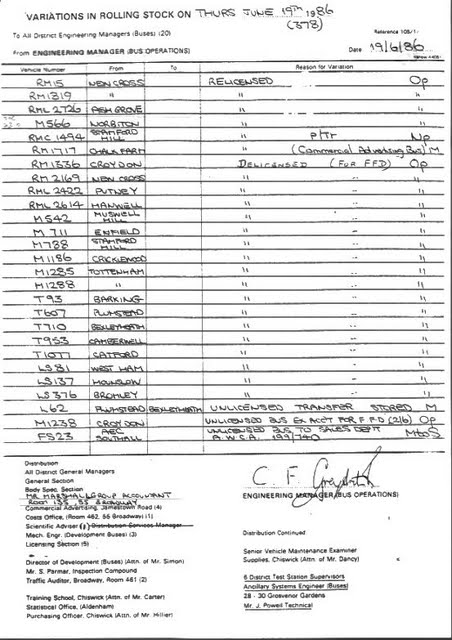 VARIATIONS IN ROLLING STOCK ON THURS JUNE 19TH 1986
(378)
To All District Engineering Managers (Buses) (20)
Reference 108/1
From ENGINEERING MANAGER (BUS OPERATIONS)
Date 19/6/86
Vehicle Number From To Reason for Variation
RM15 NEW CROSS RELICENSED Op
RM1319 " " "
RML2726 ASH GROVE " "
M566 NORBITON " "
RMC 1494 STAMFORD HILL " PTr Np
RM1717 CHALK FARM " (Commercial Advertising Bus) M
RM1336 CROYDON DELICENSED (FOR FFD) Op
RM2169 NEW CROSS " " "
RML2422 PUTNEY " " "
RML2614 HANWELL " " "
M542 MUSWELL HILL " " "
M711 ENFIELD " " "
M788 STAMFORD HILL " " "
M1186 CRICKLEWOOD " " "
M1285 TOTTENHAM " " "
M1288 " " " "
T93 BARKING " " "
T607 PLUMSTEAD " " "
T710 BEXLEYHEATH " " "
T953 CAMBERWELL " " "
T1077 CATFORD " " "
LS81 WEST HAM " " "
LS137 HOUNSLOW " " "
LS376 BROMLEY " " "
L62 PLUMSTEAD BEXLEYHEATH UNLICENSED TRANSFER STORED M
M1238 CROYDON UNLICENSED BUS EX ACCT FOR FFD (216) Op
FS23 AEC SOUTHALL UNLICENSED BUS TO SALES DEPT A.W.C.A. 199/740 M to S
Distribution
All District General Managers
General Section
Body Spec. Section
MR MARSHALL GROUP ACCOUNTANT
ROOM 135, 55 BROADWAY
Commercial Advertising, Jamestown Road (4)
Costs Office, (Room 462, 55 Broadway) (1)
Scientific Adviser (1) Distribution Services Manager
Mech. Engr. (Development Buses) (3)
Licensing Section (5)
Director of Development (Buses) (Attn. of Mr. Simon)
Mr. S. Parmar, Inspection Compound
Traffic Auditor, Broadway, Room 461 (2)
Training School, Chiswick (Attn. of Mr. Carter)
Statistical Office, (Aldenham)
Purchasing Officer, Chiswick (Attn. of Mr. Hillier)
C. F.
ENGINEERING MANAGER (BUS OPERATIONS)
Distribution Continued
Senior Vehicle Maintenance Examiner
Supplies, Chiswick (Attn. of Mr. Dancy)
6 District Test Station Supervisors
Ancillary Systems Engineer (Buses)
28 - 30 Grosvenor Gardens
Mr. J. Powell Technical